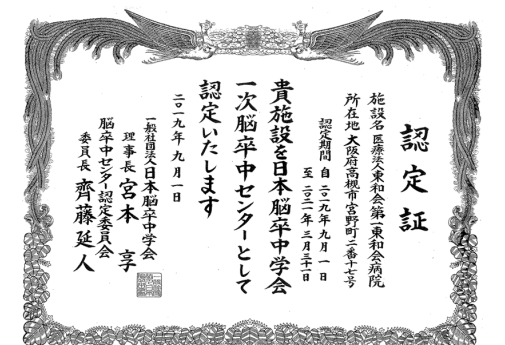 認定証
施設名 医療法人東和会第二東和会病院
所在地 大阪府高槻市宮野町二番十七号
認定期間 自 二〇一九年九月一日
至 二〇二一年三月三十一日
貴施設を日本脳卒中学会
一次脳卒中センターとして
認定いたします
二〇一九年九月一日
一般社団法人日本脳卒中学会
理事長 宮本 享
脳卒中センター認定委員会
委員長 齊藤延人